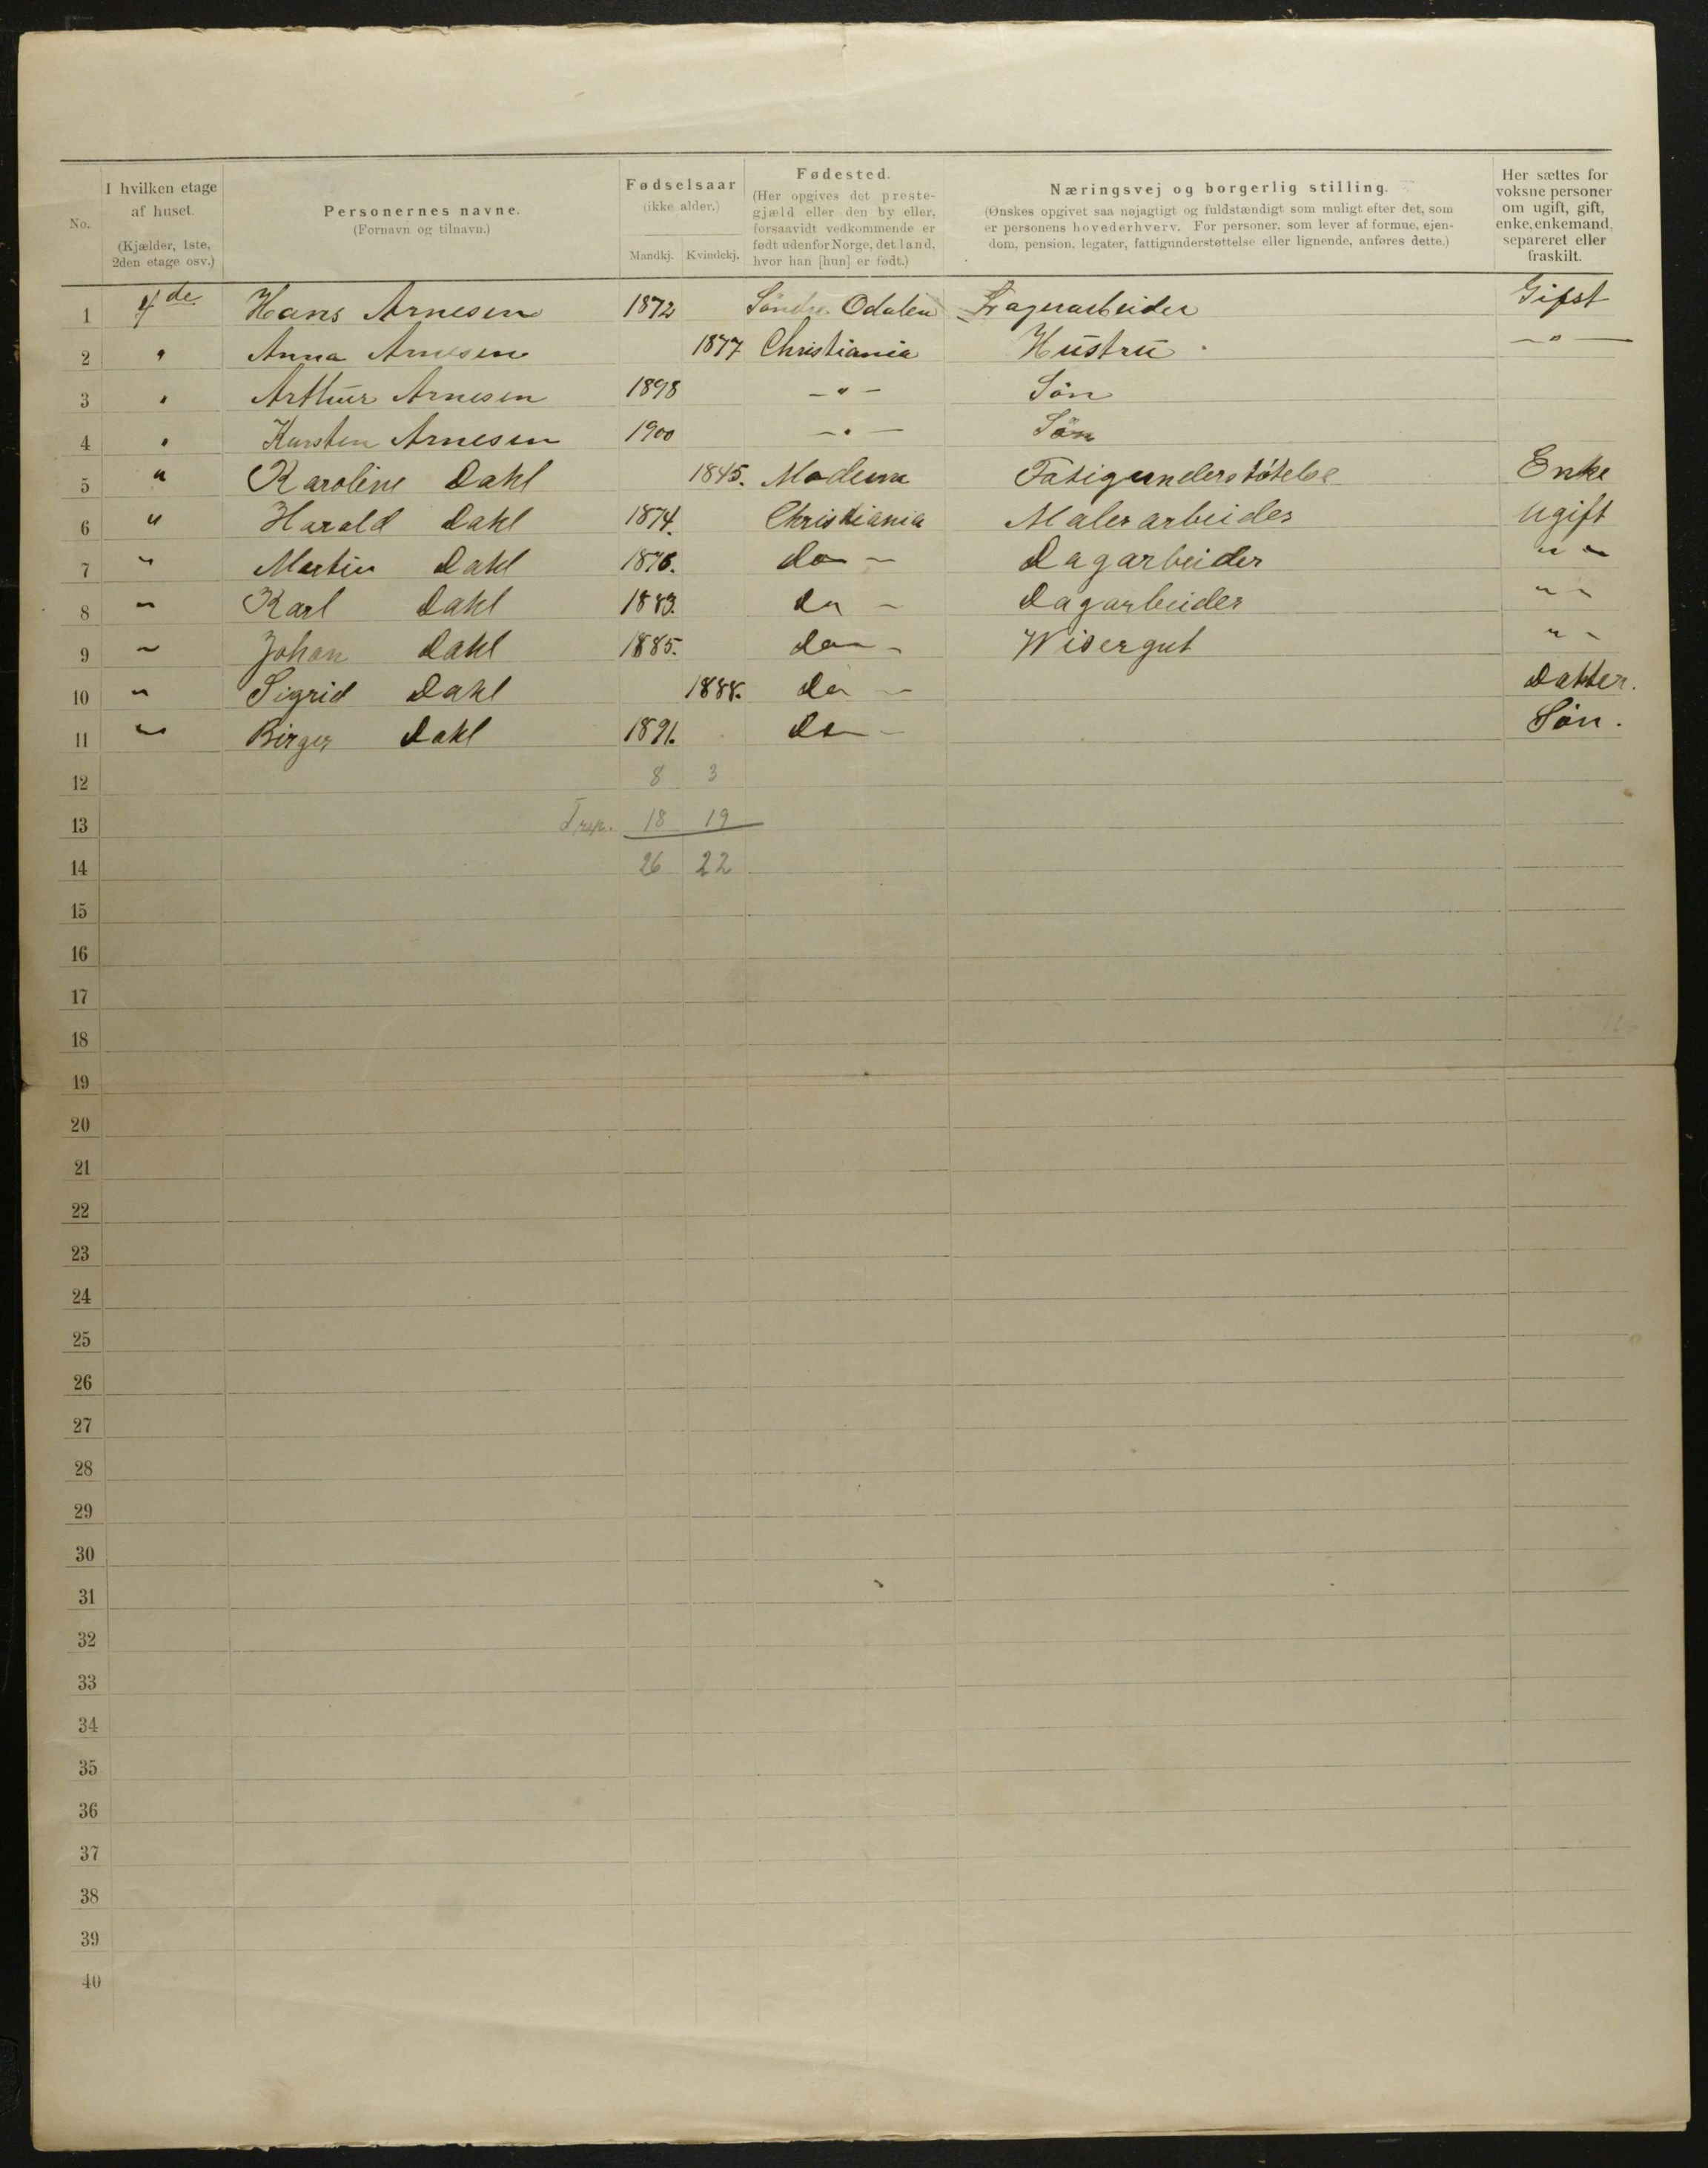 No.
I hvilken etage af huset. (Kjælder, 1ste, 2den etage osv.)
Personernes navne. (Fornavn og tilnavn.)
Fødselsaar (ikke alder.) Mandkj. Kvindekj.
Fødested. (Her opgives det prestegjæld eller den by eller, forsaavidt vedkommende er født udenfor Norge, det land, hvor han [hun] er født.)
Næringsvej og borgerlig stilling. (Ønskes opgivet saa nøjagtigt og fuldstændigt som muligt efter det, som er personens hovederhverv. For personer, som lever af formue, ejendom, pension, legater, fattigunderstøttelse eller lignende, anføres dette.)
Her sættes for voksne personer om ugift, gift, enke, enkemand, separeret eller fraskilt.
1 4de Hans Arnesen 1872 Søndre Odalen Lagerarbeider Gifst
2 " Anna Arnesen 1877 Christiania Hustru —"—
3 " Arthur Arnesen 1898 —"— Søn
4 " Karsten Arnesen 1900 —"— Søn
5 " Karoline Dahl 1845. Modum Fatigunderstøtelse Enke
6 " Harald Dahl 1874. Christiania Malerarbeider Ugift
7 " Martin Dahl 1876. do — Dagarbeider " "
8 " Karl Dahl 1883. do — Dagarbeider " "
9 " Johan Dahl 1885. do — Wisergut " "
10 " Sigrid Dahl 1888. do — Datter.
11 " Birger Dahl 1891. do — Søn.
12 8 3
13 Trsp. 18 19
14 26 22
15
16
17
18
19
20
21
22
23
24
25
26
27
28
29
30
31
32
33
34
35
36
37
38
39
40